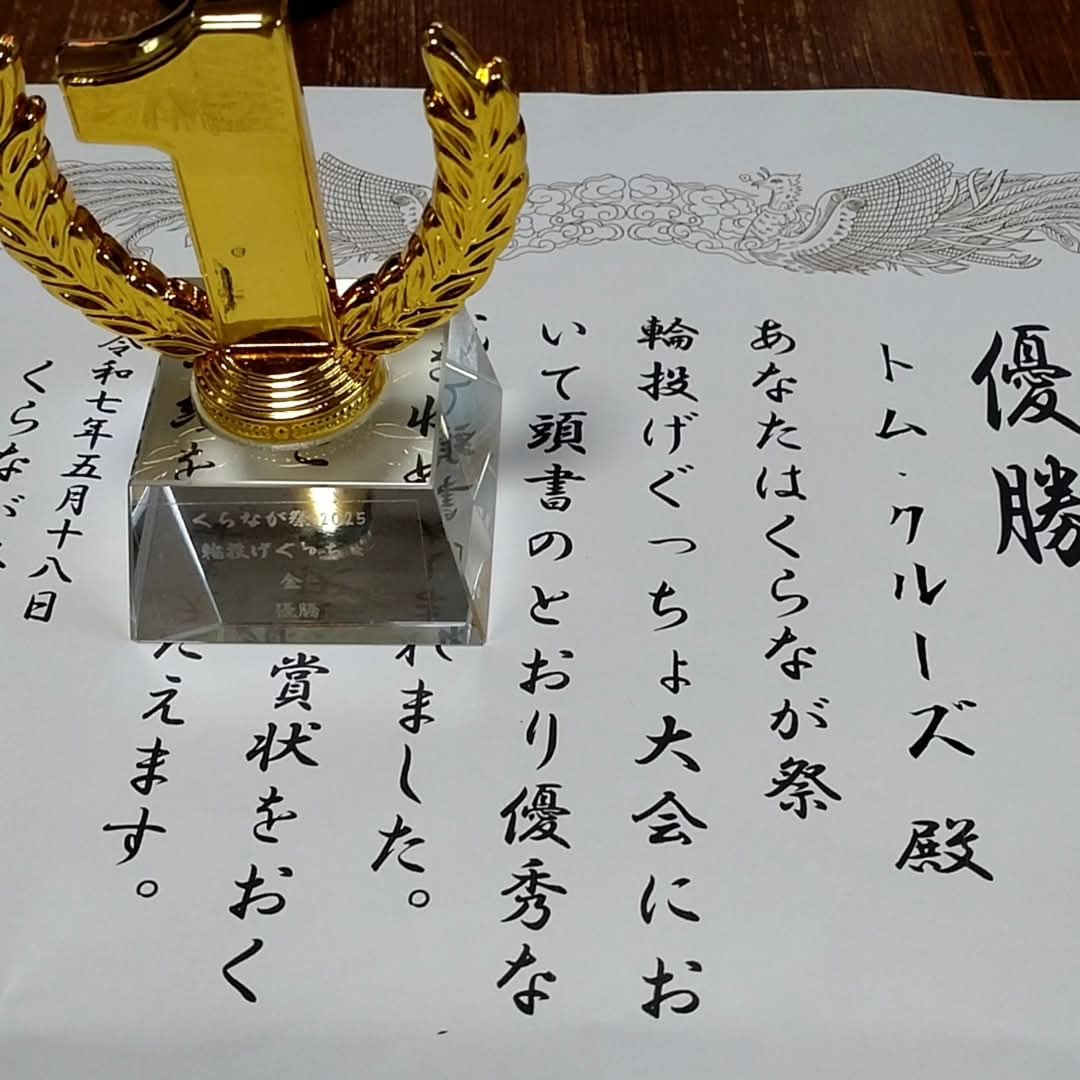 優勝
トム・クルーズ 殿
あなたはくらなが祭
輪投げぐっちょ大会にお
いて頭書のとおり優秀な
れました。
賞状をおく
たえます。
令和七年五月十八日
くらなが
くらなが祭 2025
輪投げぐっちょ
優勝